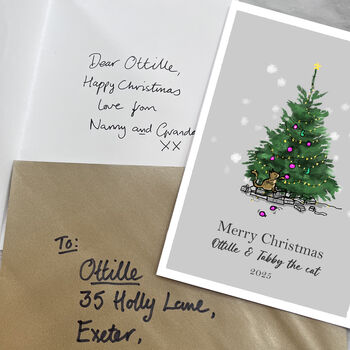 Dear Ottilie,
Happy Christmas
Love from
Nanny and Grandad
XX
Merry Christmas
Ottilie & Tabby the cat
2025
To:
Ottilie
35 Holly Lane,
Exeter,